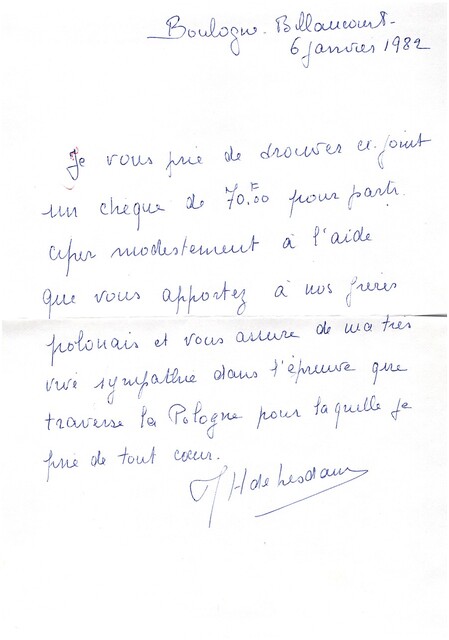 Boulogne-Billancourt-
6 janvier 1982
Je vous prie de trouver ci-joint
un chèque de 70.F00 pour parti-
ciper modestement à l'aide
que vous apportez à nos frères
polonais et vous assure de ma très
vive sympathie dans l'épreuve que
traverse la Pologne pour laquelle je
prie de tout cœur.